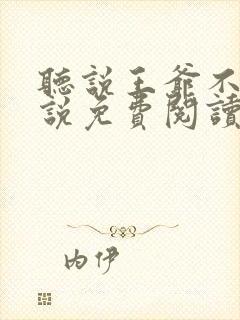 聽說王爺不
說免費閱讀
內伊